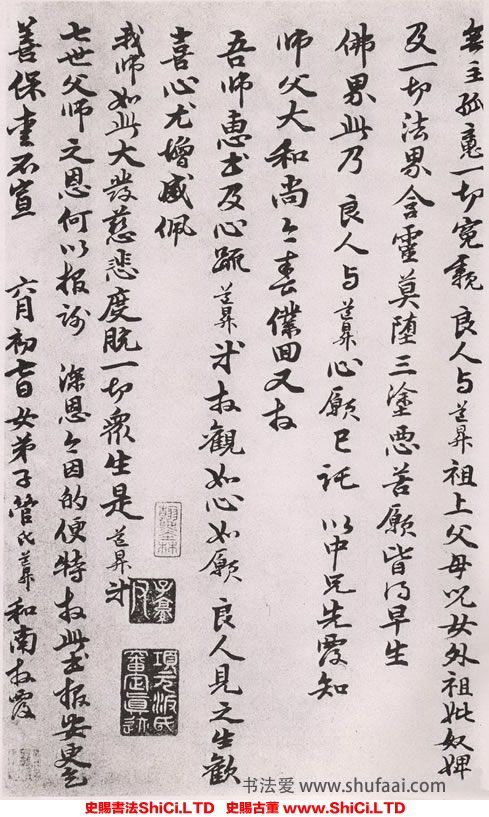 無主孤魂一切冤親 良人与道昇祖上父母兒女外祖妣奴婢
及一切法界含靈莫墮三塗惡苦願皆得早生
佛界此乃 良人与道昇心願已託 以中兄先覆知
師父大和尚今春僕回又拜
吾師惠書及心疏道昇等拜觀如心如願 良人見之生歡
喜心尤增感佩
我師如此大發慈悲度脫一切眾生是道昇等
七世父師之恩何以報謝 深恩今因的便特拜此書報安更乞
善保重不宣 六月初七日女弟子管氏道昇和南拜覆
項元汴氏審定真跡
书法爱 www.shufaai.com
史賜書法ShiCi.LTD 史賜古董 www.ShiCi.LTD